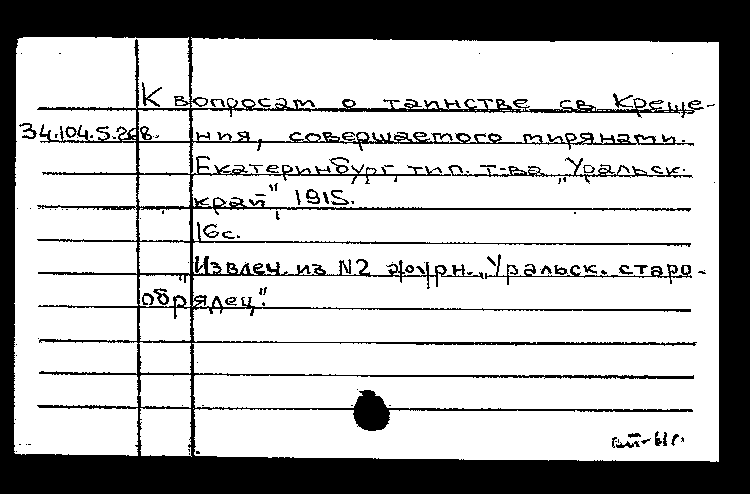 К вопросам о таинстве св. Креще-
34.104.5.268. ния, совершаемого мирянами.
Екатеринбург, тип. т-ва „Уральск.
край", 1915.
16с.
Извлеч. из N2 журн. „Уральск. старо-
обрядец".